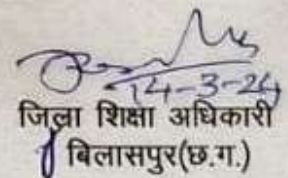 14-3-24
जिला शिक्षा अधिकारी
बिलासपुर(छ.ग.)